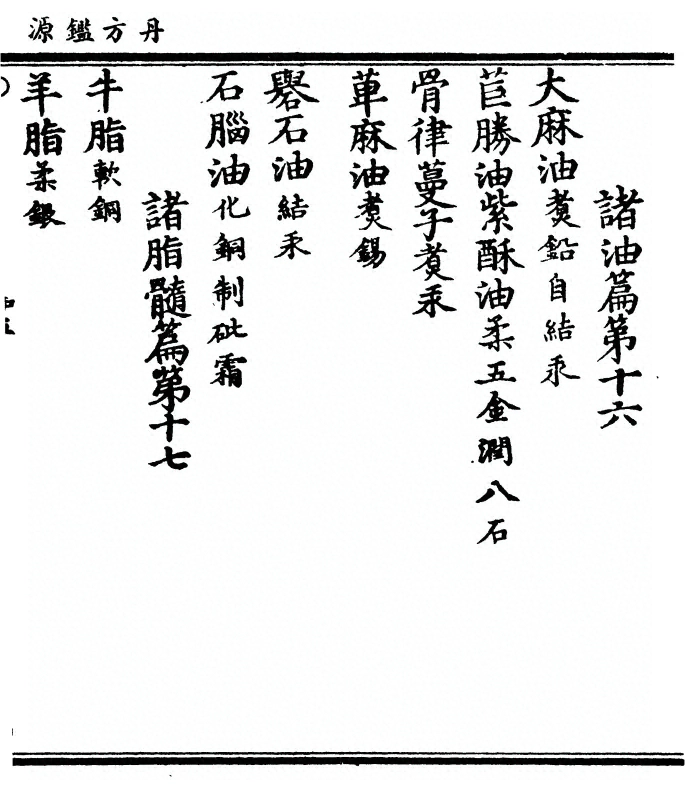 丹方鑑源
諸油篇第十六
大麻油煑鉛自結汞
苣勝油紫酥油柔五金潤八石
骨律蔓子煑汞
萆麻油煑錫
礜石油結汞
石腦油化銅制砒霜
諸脂髓篇第十七
牛脂軟鋼
羊脂柔銀